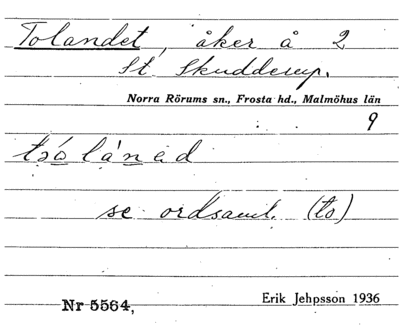 Tolandet, åker å 2
St. Skudderup.
Norra Rörums sn., Frosta hd., Malmöhus län
9
se ordsaml. (to)
Nr 5564,
Erik Jehpsson 1936